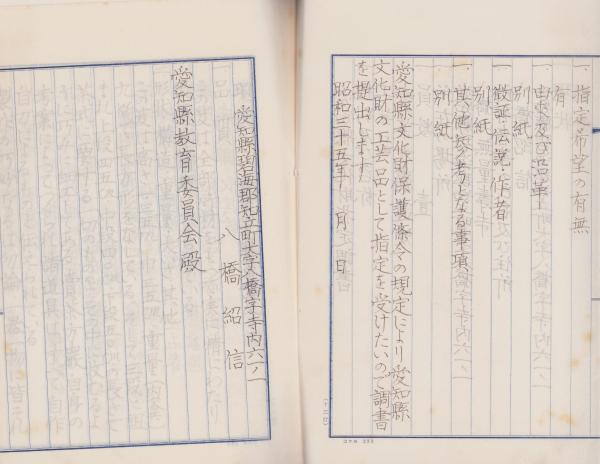 一、指定希望の有無
有
一、由来及び沿革
別紙
一、徴証、伝説、作者
別紙
一、其他参考となる事項
別紙
愛知縣文化財保護條令の規定により愛知縣
文化財の工芸品として指定を受けたいので調書
を提出します
昭和三十五年 月 日
愛知縣碧海郡知立町大字八橋字寺内六一ノ一
八橋紹信
愛知縣教育委員会殿